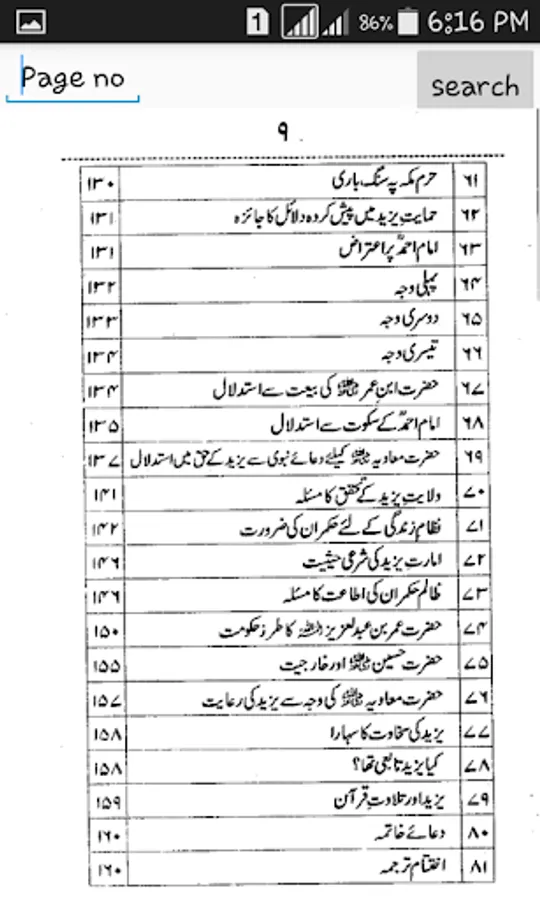 1 86% 6:16 PM
Page no search
۹
۶۱ حرم مکہ پہ سنگ باری ۱۳۰
۶۲ حمایتِ یزید میں پیش کردہ دلائل کا جائزہ ۱۳۱
۶۳ امام احمدؒ پر اعتراض ۱۳۱
۶۴ پہلی وجہ ۱۳۲
۶۵ دوسری وجہ ۱۳۳
۶۶ تیسری وجہ ۱۳۴
۶۷ حضرت ابن عمر رضی اللہ عنہ کی بیعت سے استدلال ۱۳۴
۶۸ امام احمدؒ کے سکوت سے استدلال ۱۳۵
۶۹ حضرت معاویہ رضی اللہ عنہ کیلئے دعائے نبوی سے یزید کے حق میں استدلال ۱۳۷
۷۰ ولایتِ یزید کے تحقق کا مسئلہ ۱۴۱
۷۱ نظامِ زندگی کے لئے حکمران کی ضرورت ۱۴۲
۷۲ امارتِ یزید کی شرعی حیثیت ۱۴۶
۷۳ ظالم حکمران کی اطاعت کا مسئلہ ۱۴۶
۷۴ حضرت عمر بن عبدالعزیز رحمہ اللہ کا طرزِ حکومت ۱۵۰
۷۵ حضرت حسین رضی اللہ عنہ اور خارجیت ۱۵۵
۷۶ حضرت معاویہ رضی اللہ عنہ کی وجہ سے یزید کی رعایت ۱۵۷
۷۷ یزید کی سخاوت کا سہارا ۱۵۸
۷۸ کیا یزید تابعی تھا؟ ۱۵۸
۷۹ یزید اور تلاوتِ قرآن ۱۵۹
۸۰ دعائے خاتمہ ۱۶۰
۸۱ اختتام ترجمہ ۱۶۰